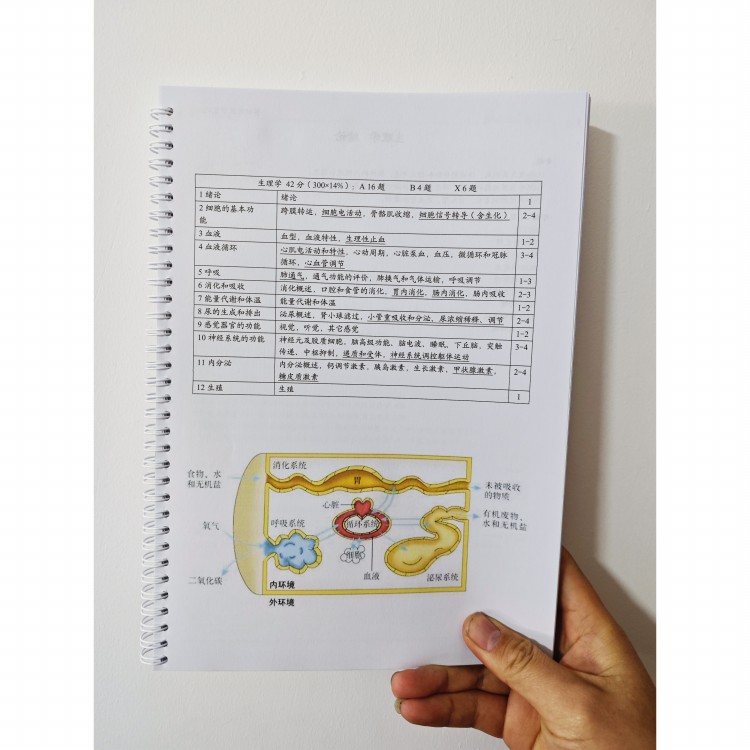 生理学 42 分（300×14%）：A 16 题 B 4 题 X 6 题
1 绪论 绪论 1
2 细胞的基本功能 跨膜转运，细胞电活动，骨骼肌收缩，细胞信号转导（含生化） 2-4
3 血液 血型，血液特性，生理性止血 1-2
4 血液循环 心肌电活动和特性，心动周期，心脏泵血，血压，微循环和冠脉
循环，心血管调节 3-4
5 呼吸 肺通气，通气功能的评价，肺换气和气体运输，呼吸调节 1-3
6 消化和吸收 消化概述，口腔和食管的消化，胃内消化，肠内消化，肠内吸收 2-3
7 能量代谢和体温 能量代谢和体温 1-2
8 尿的生成和排出 泌尿概述，肾小球滤过，小管重吸收和分泌，尿浓缩稀释，调节 2-4
9 感觉器官的功能 视觉，听觉，其它感觉 1-2
10 神经系统的功能 神经元及胶质细胞，脑高级功能，脑电波，睡眠，下丘脑，突触
传递，中枢抑制，递质和受体，神经系统调控躯体运动 3-4
11 内分泌 内分泌概述，钙调节激素，胰岛激素，生长激素，甲状腺激素，
糖皮质激素 2-4
12 生殖 生殖 1
消化系统
食物、水
和无机盐
胃
未被吸收
的物质
心脏
氧气
呼吸系统
循环系统
有机废物、
水和无机盐
细胞
二氧化碳
血液
泌尿系统
内环境
外环境